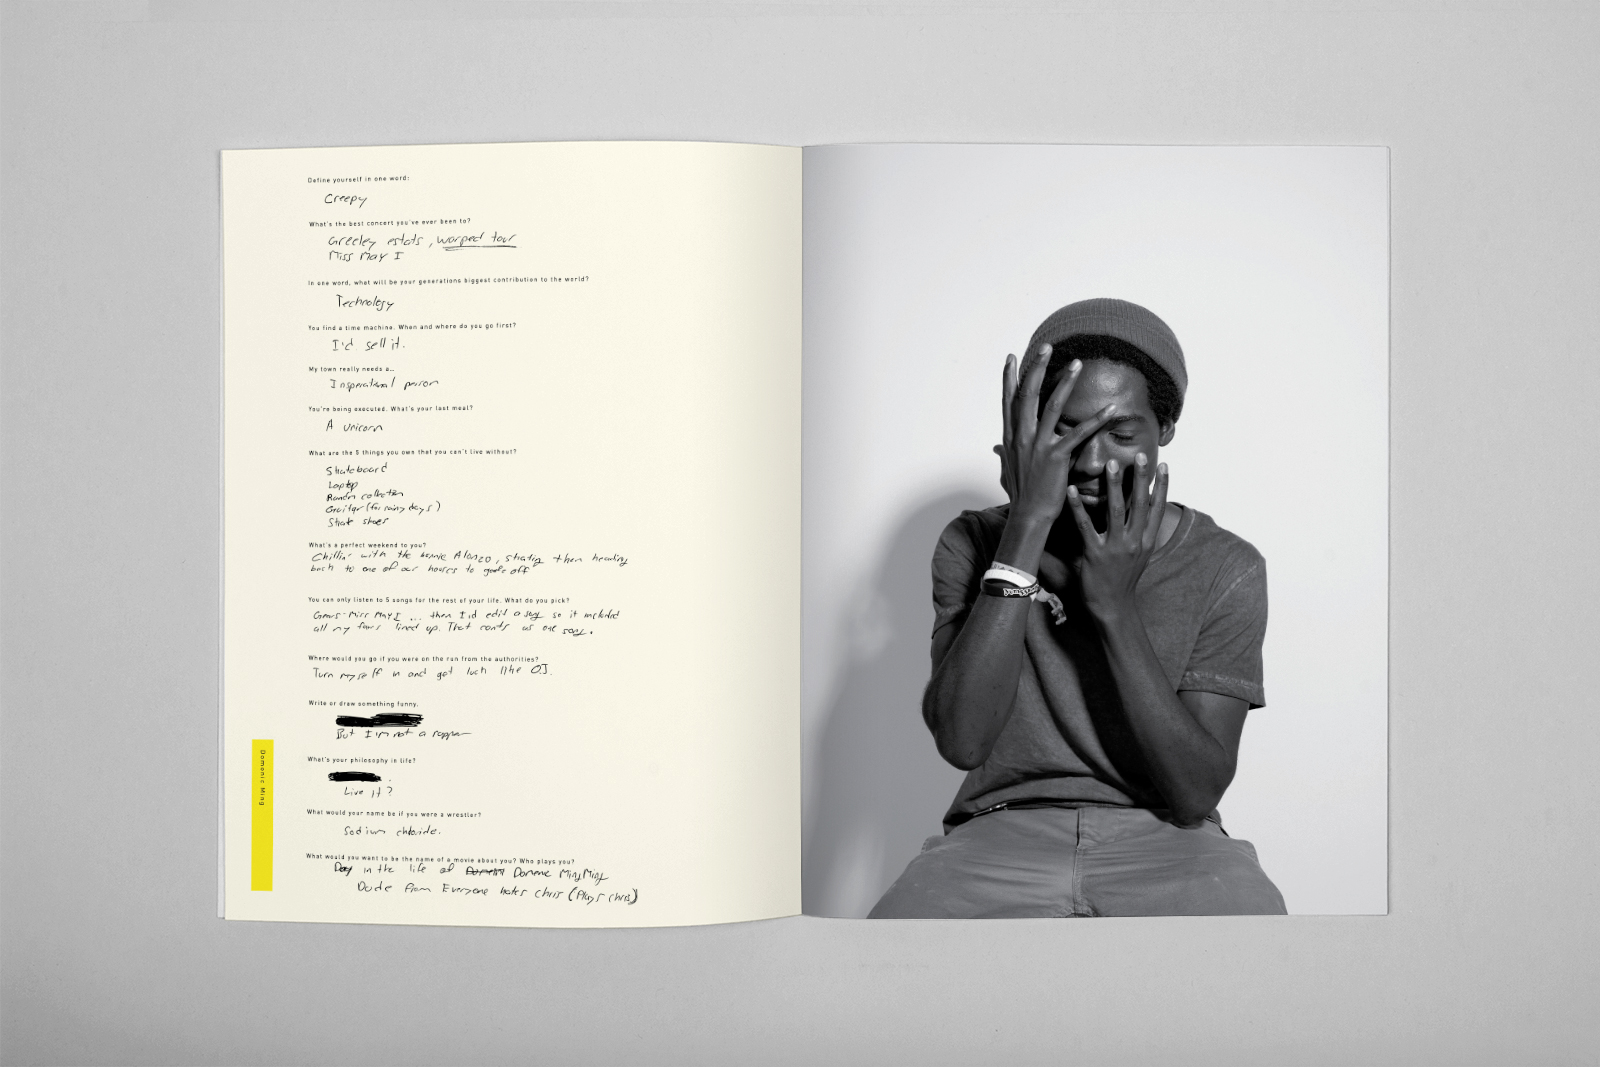 Define yourself in one word:
Creepy
What's the best concert you've ever been to?
Greeley estats, warped tour
Miss May I
In one word, what will be your generations biggest contribution to the world?
Technology
You find a time machine. When and where do you go first?
I'd sell it.
My town really needs a...
Insperational person
You're being executed. What's your last meal?
A unicorn
What are the 5 things you own that you can't live without?
Skateboard
Laptop
Random collection
Guitar (for rainy days)
Skate shoes
What's a perfect weekend to you?
Chillin' with the homie Alonzo, skating then heading
back to one of our houses to goof off
You can only listen to 5 songs for the rest of your life. What do you pick?
Gears-Miss May I ... then I'd edit a song so it included
all my favs lined up. That counts as one song.
Where would you go if you were on the run from the authorities?
Turn myself in and get luck like OJ.
Write or draw something funny.
But I'm not a rapper
What's your philosophy in life?
Live it?
What would your name be if you were a wrestler?
Sodium chloride.
What would you want to be the name of a movie about you? Who plays you?
Day in the life of Domenic MingMing
Dude from Everyone hates Chris (Plays chris)
Domenic Ming